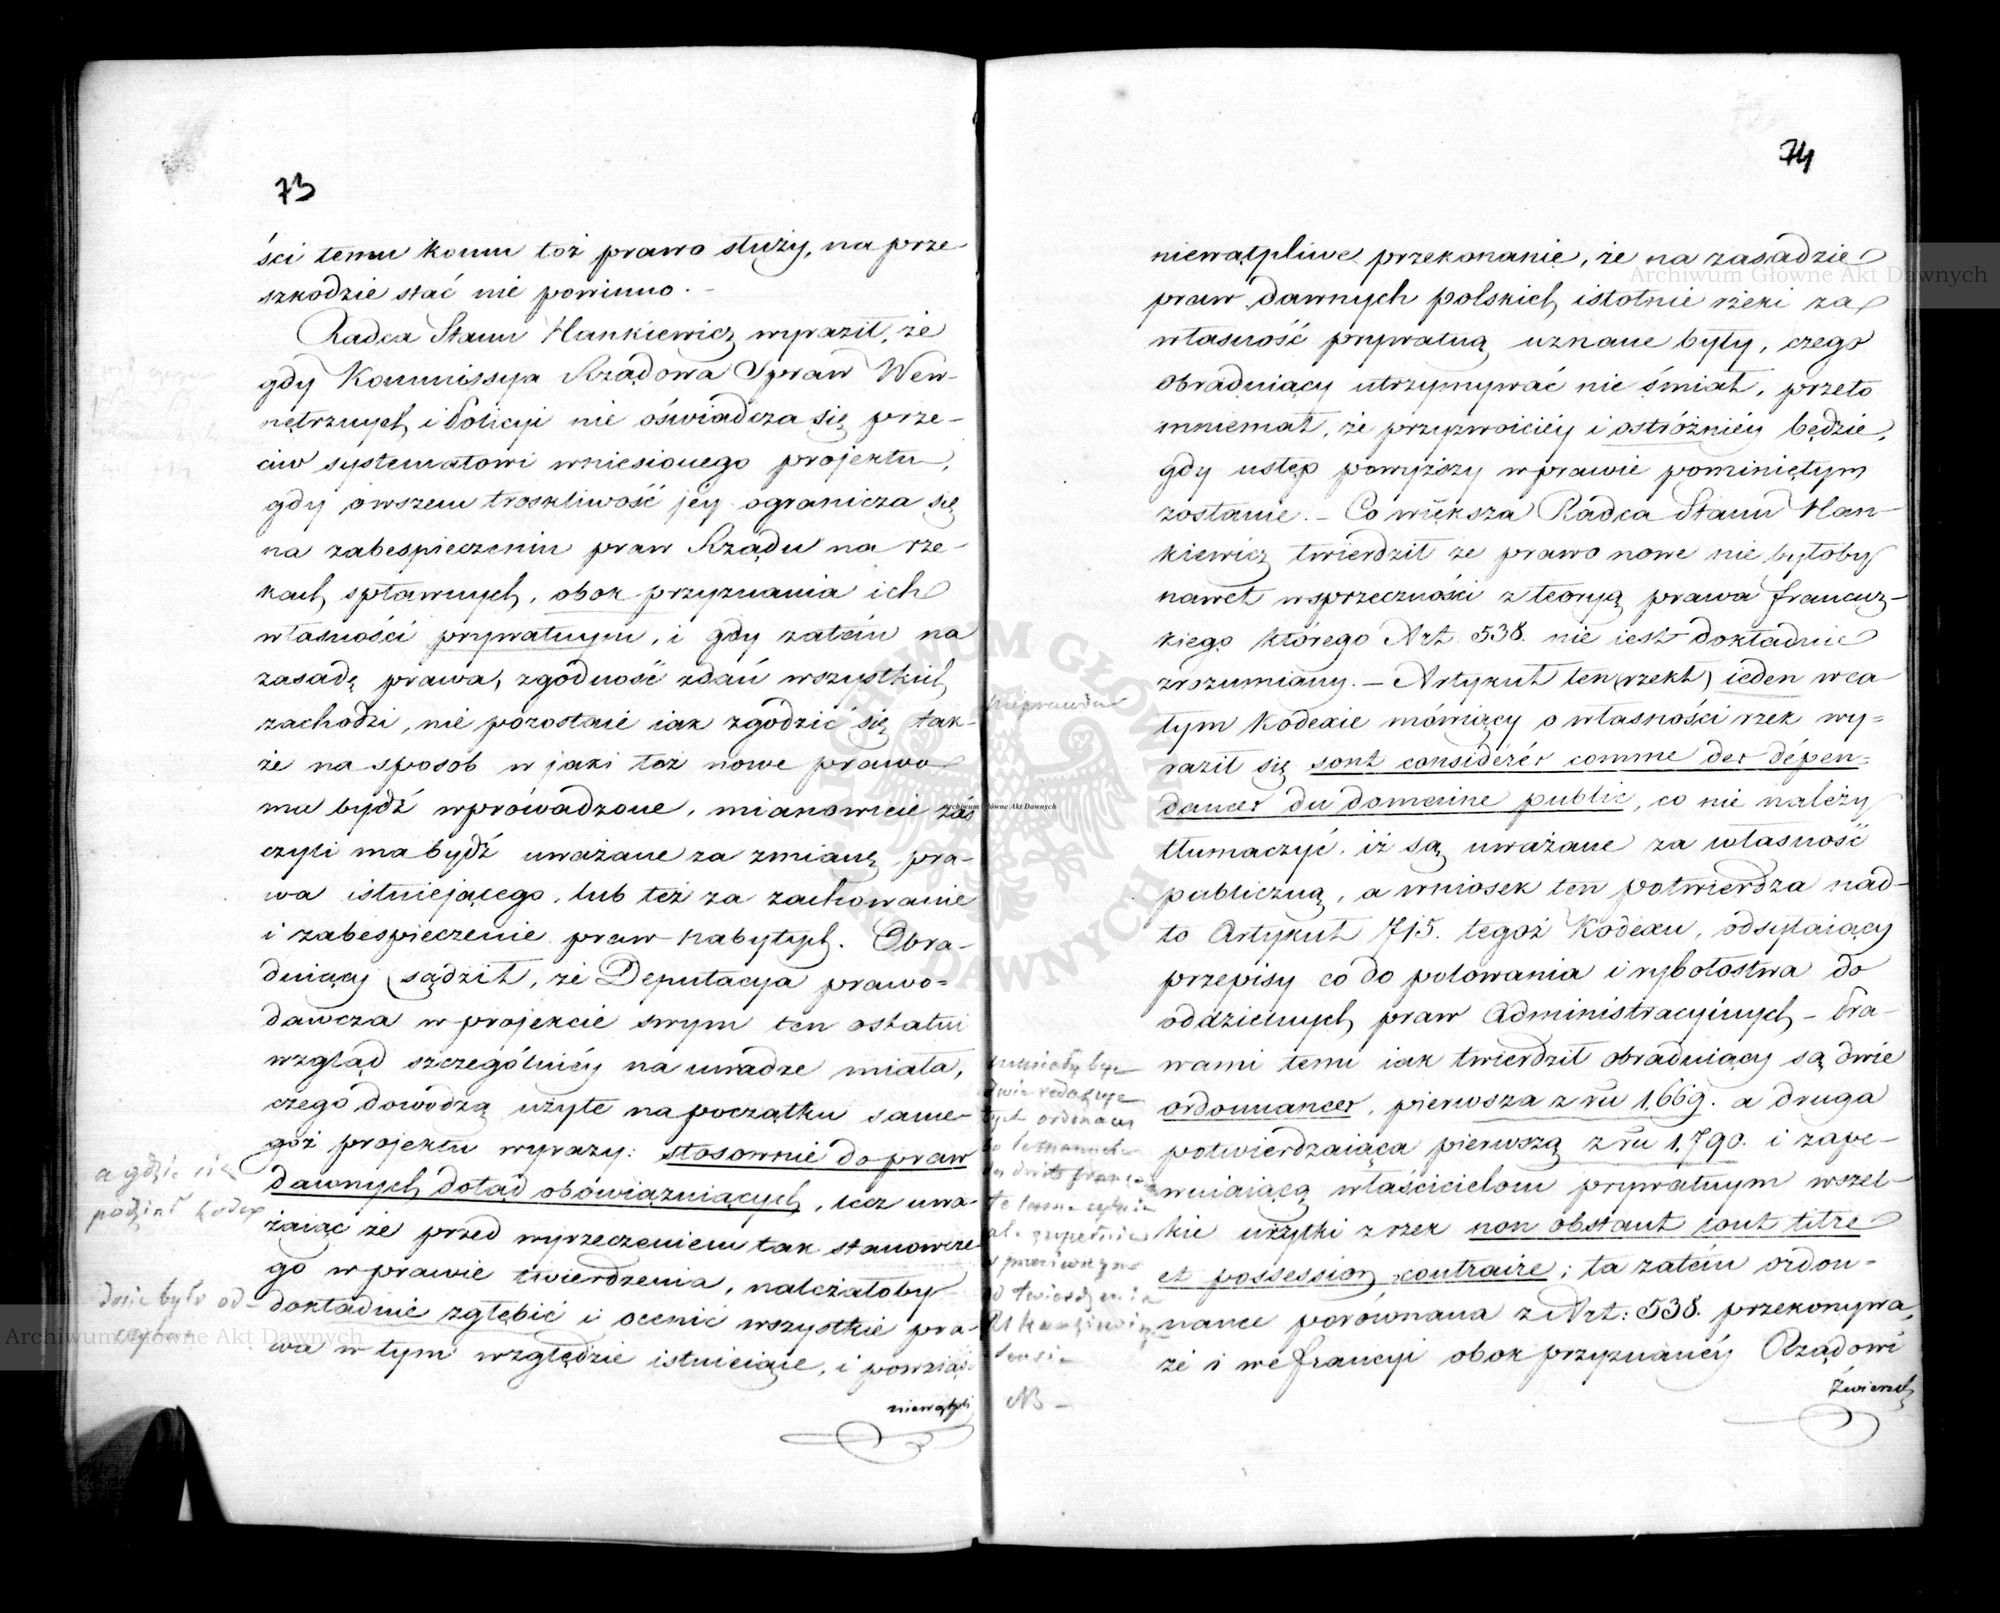 73
ści temu komu toż prawo służy, na prze-
szkodzie stać nie powinno. -
Radca Stanu Hankiewicz wyraził, że
gdy Kommissya Rządowa Spraw Wew-
nętrznych i Policyi nie oświadcza się prze-
ciw systematowi wniesionego projektu,
gdy owszem troskliwość jey ogranicza się
na zabespieczeniu praw Rządu na rze-
kach spławnych, obok przyznania ich
własności prywatnym, i gdy zatém na
zasadę prawa, zgodność zdań wszystkich
zachodzi, nie pozostaie iak zgodzić się tak-
że na sposob w jaki toż nowe prawo
ma bydź wprowadzone, mianowicie zaś
czyli ma bydź uważane za zmianę pra-
wa istniejącego, lub też za zachowanie
i zabespieczenie praw nabytych. Obra-
duiący sądził, że Deputacya prawo-
dawcza w projekcie swym ten ostatni
wzgląd szczególniéy na uwadze miała,
czego dowodzą użyte na początku same-
goż projektu wyrazy: stosownie do praw
dawnych dotąd obówiązuiących, lecz uwa-
żaiąc że przed wyrzeczeniem tak stanowcze
go w prawie twierdzenia, należałoby
dokładnie zgłębić i ocenić wszystkie pra-
wa w tym względzie istnieiące, i powziąć
niewątpli
a gdzie się
podział kodex
dosić było od-
74
niewątpliwe przekonanie, że na zasadzie
praw dawnych polskich istotnie rzeki za
własność prywatną uznane były, czego
obraduiący utrzymywać nie śmiał, przeto
mniemał, że przyzwoiciéy i ostróżniéy będzie,
gdy ustęp powyższy w prawie pominiętym
zostanie. - Co większa Radca Stanu Han-
kiewicz twierdził że prawo nowe nie byłoby
nawet w sprzeczności z teoryą prawa francuz-
kiego którego Art. 538. nie iest dokładnie
zrozumiany. - Artykuł ten (rzekł) ieden w ca-
łym Kodexie mówiący o własności rzek wy-
raził się sont considérés comme des dépen-
dances du domaine public, co nie należy
tłumaczyć, iż są uważane za własność
publiczną, a wniosek ten potwierdza nad-
to Artykuł 715. tegoż Kodexu, odsyłaiący
przepisy co do polowania i rybołostwa do
oddzielnych praw Administracyinych - Pra-
wami temi iak twierdził obraduiący są dwie
ordonnances, pierwsza z ru 1,669. a druga
potwierdzaiąca pierwszą z ru 1,790. i zape-
wniaiącą właścicielom prywatnym wszel-
kie użytki z rzek non obstant tout titre
et possession contraire; ta zatém ordon-
nance porównana z Art: 538. przekonywa,
że i we francyi obok przyznanéy Rządowi
Zwierzch
nieprawda
NB -
Archiwum Główne Akt Dawnych
Archiwum Główne Akt Dawnych
Archiwum Główne Akt Dawnych
ARCHIWUM GŁÓWNE AKT DAWNYCH